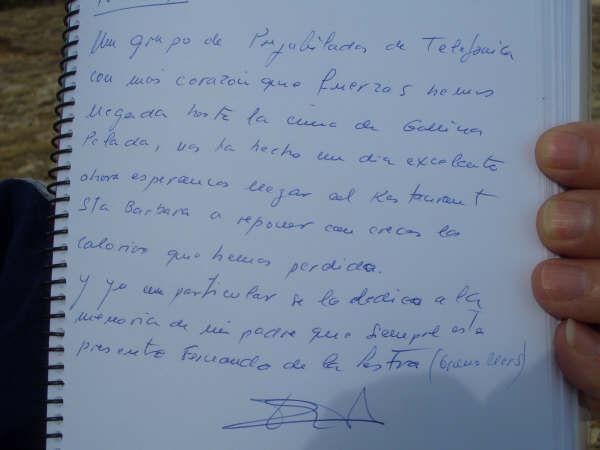 Un grupo de Prejubilados de Telefonica
con más corazón que fuerzas hemos
llegado hasta la cima de Gallina
Pelada, nos ha hecho un dia excelente
ahora esperamos llegar al Restaurant
Sta Barbara a reponer con creces las
calorias que hemos perdido.
Y yo en particular se lo dedico a la
memoria de mi padre que siempre está
presente Fernando de la Lastra